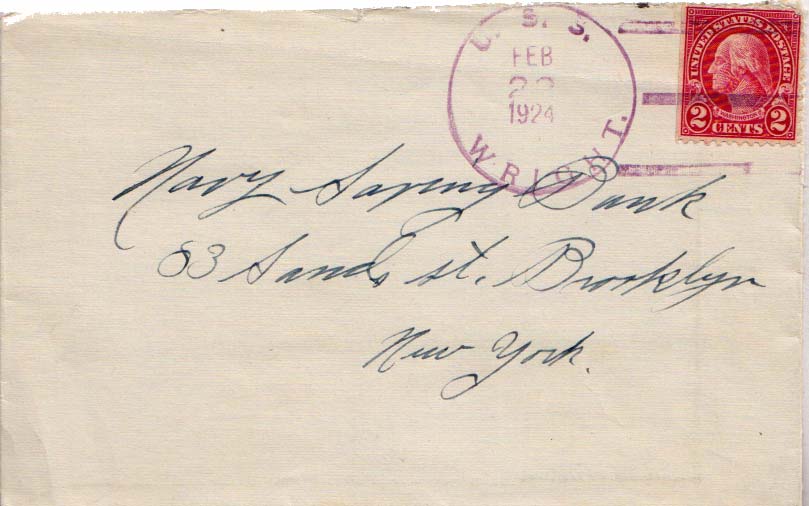 U. S. S.
FEB
1924
WRIGHT.
UNITED STATES POSTAGE
WASHINGTON
2 CENTS 2
Navy Saving Bank
83 Sands st. Brooklyn
New York.